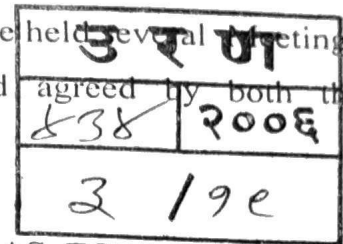 e held several Meeting
उ र ण
d agreed by both th
४३४ २००६
३ /१९